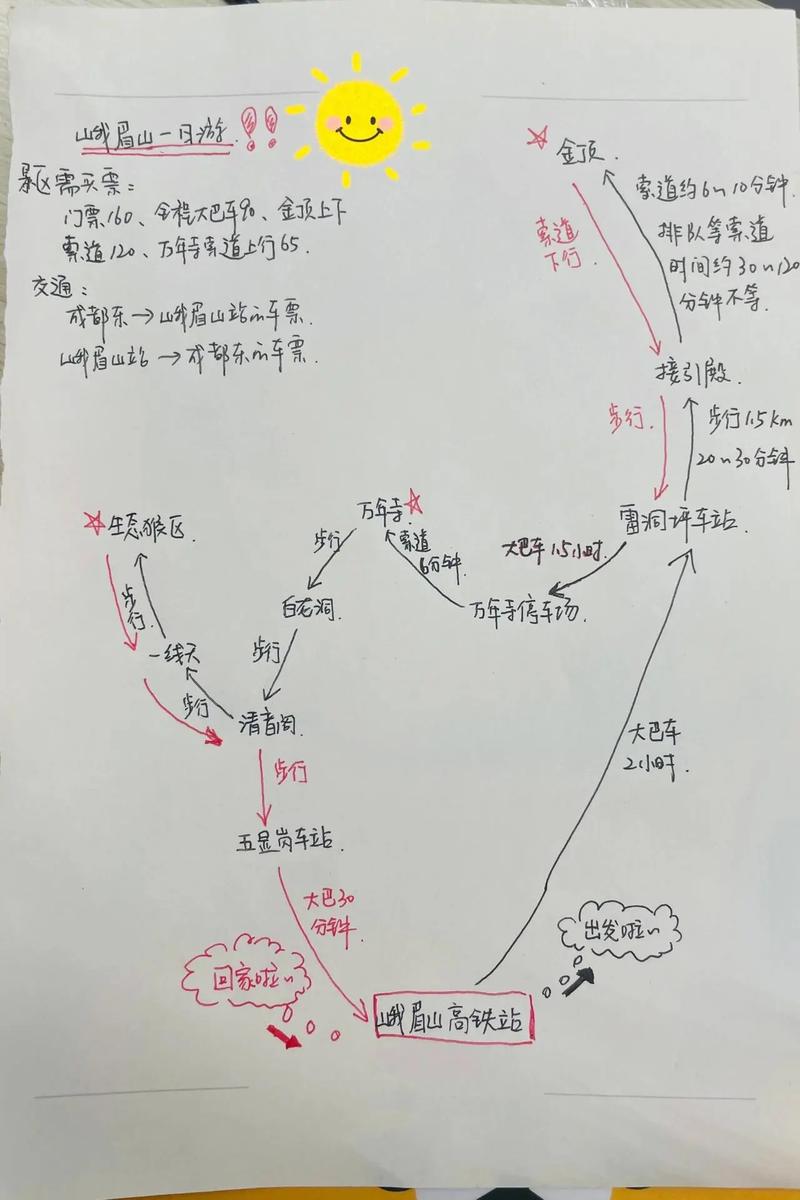 峨眉山一日游!!
景区需买票:
门票160、全程大巴车90、金顶上下
索道120、万年寺索道上行65.
交通:
成都东→峨眉山站的车票.
峨眉山站→成都东的车票.
金顶.
索道约6~10分钟.
排队等索道
时间约30~120
分钟不等.
索道
下行.
接引殿.
步行.
步行1.5km
20~30分钟
雷洞坪车站.
大巴车1.5小时.
万年寺停车场.
索道
6分钟.
万年寺
步行
白龙洞.
步行
清音阁.
步行
一线天
步行.
生态猴区.
步行
五显岗车站.
大巴30
分钟.
大巴车
2小时.
出发啦~
回家啦~
峨眉山高铁站